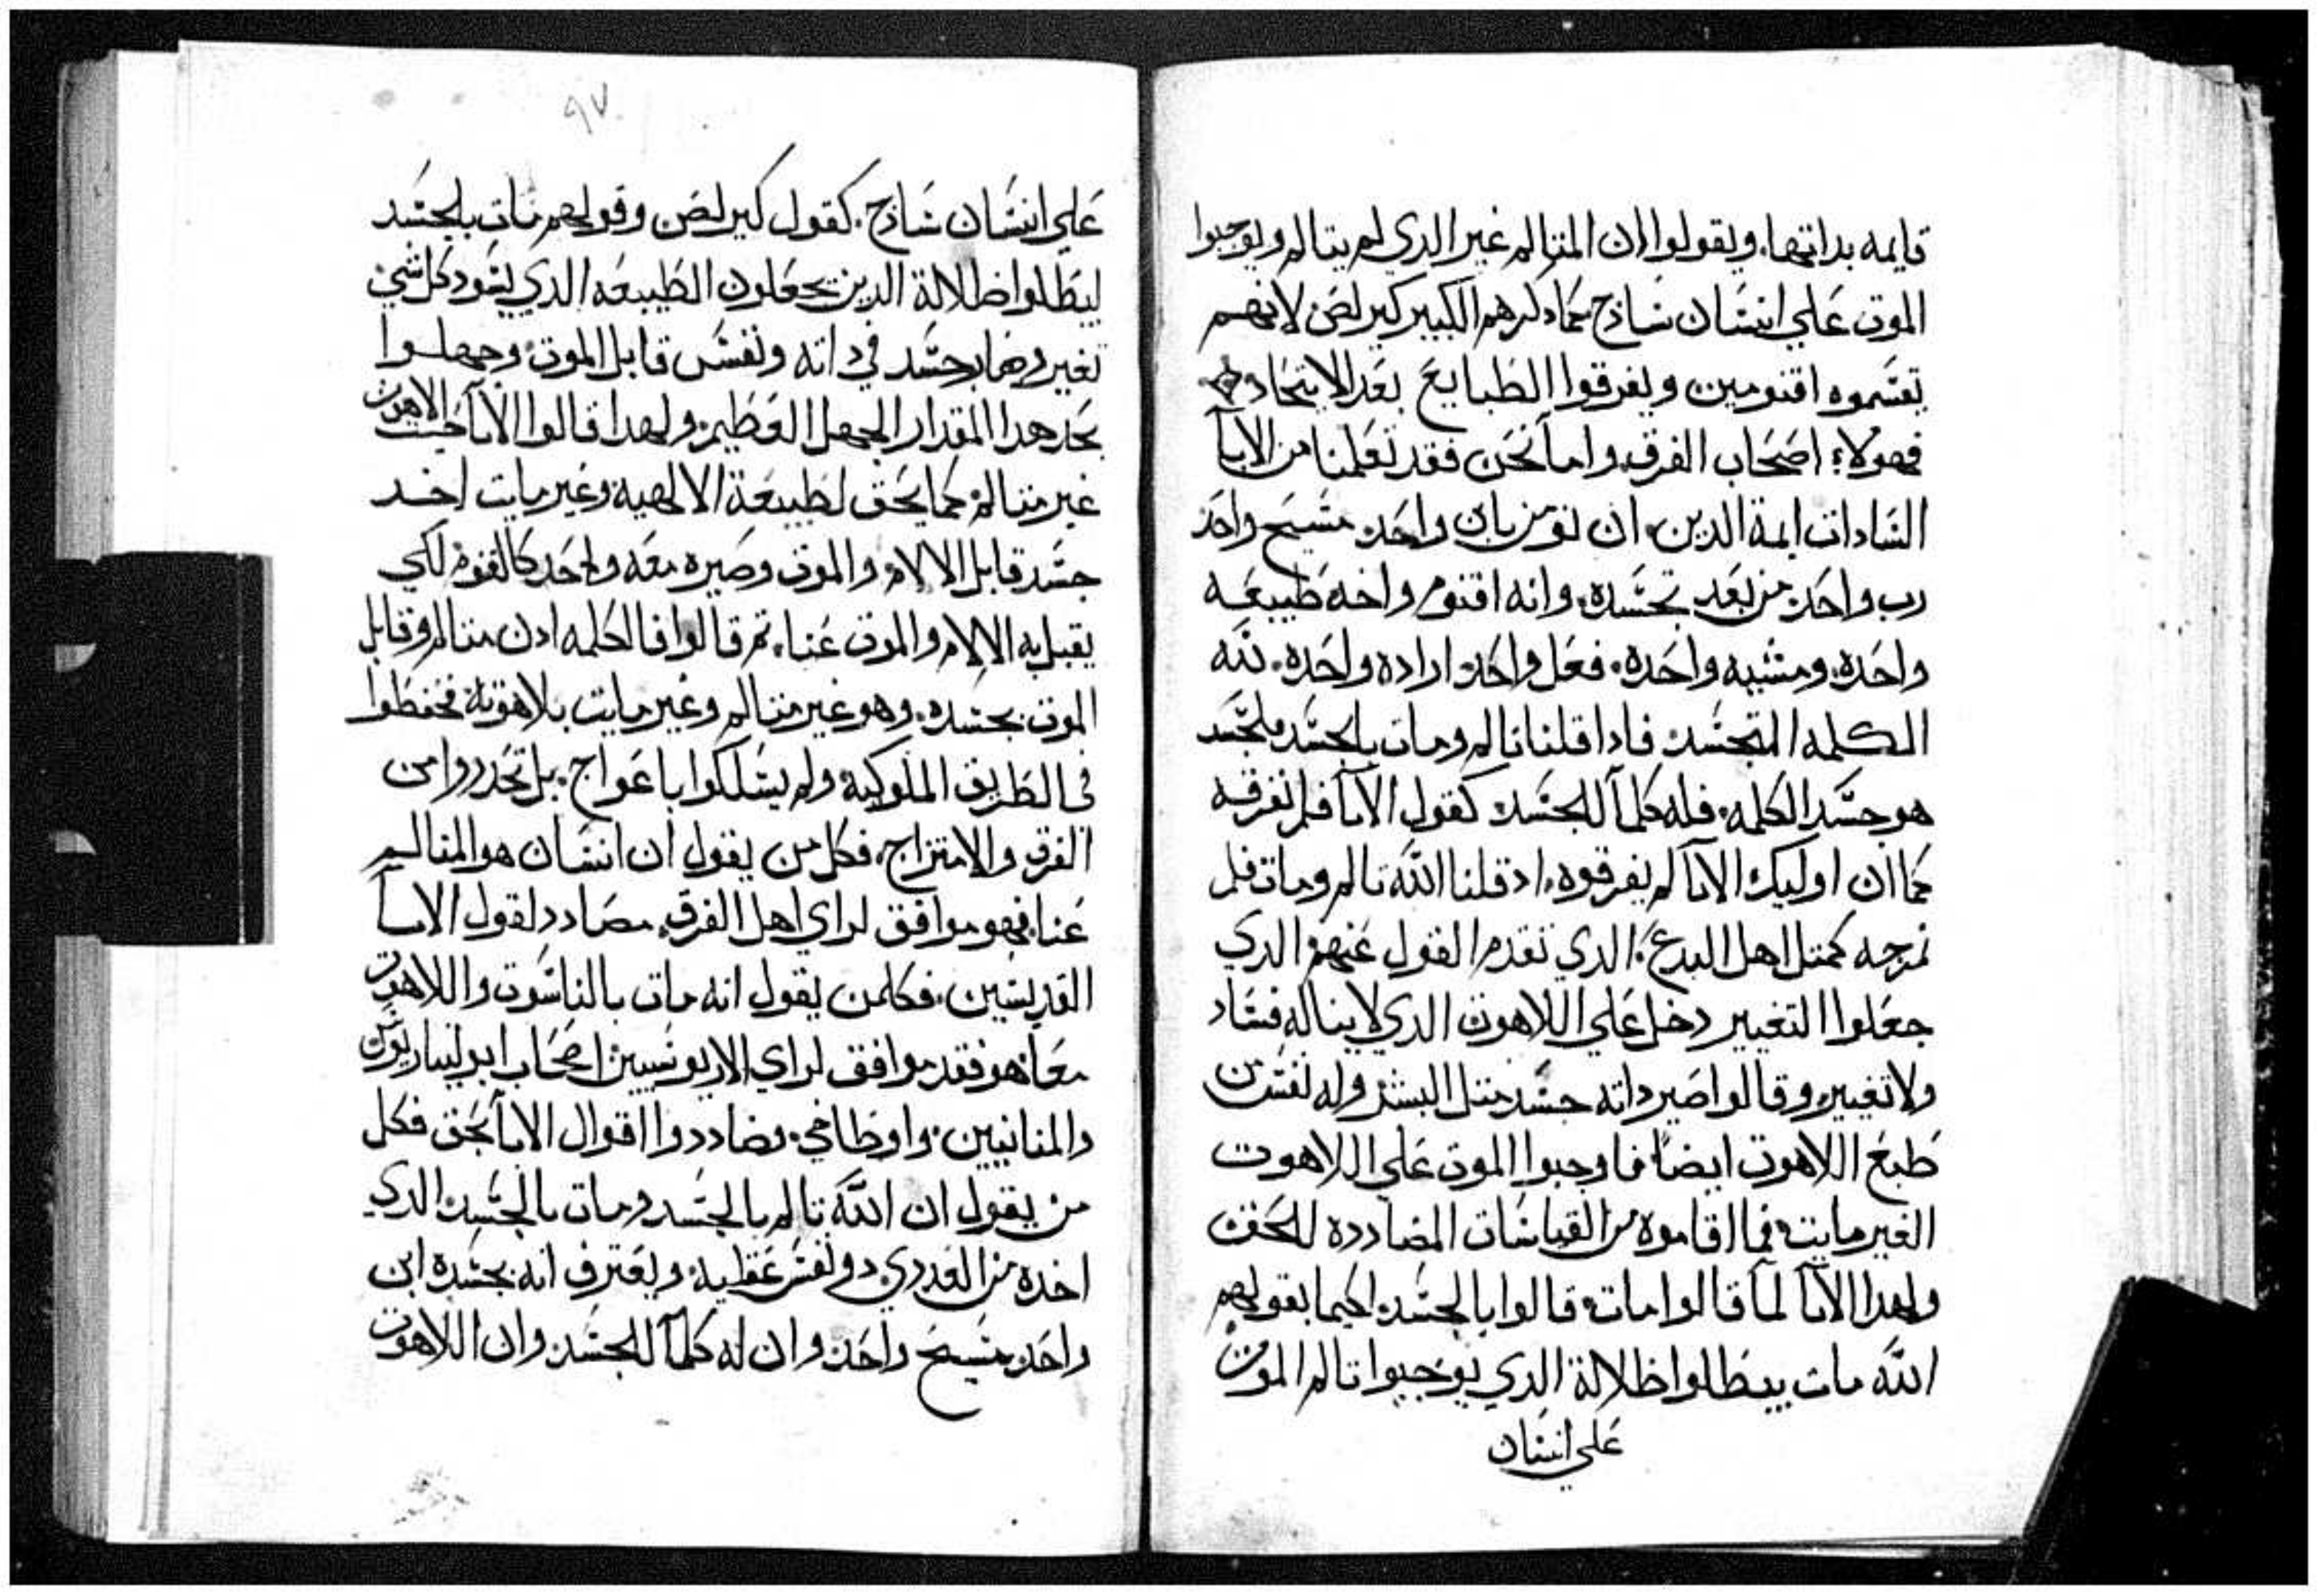 قايمه بداتها. ويقولوا ان المتالم غير الدي لم يتالم ويوجبوا
الموت علي انسان سادج كما دكرهم الكبير كيرلص لانهم
تقسموه اقنومين ويفرقوا الطبايع بعد الاتحاد
فهولاء اصحاب الفرق. واما نحن فقد تعلمنا من الابآ
السادات ايمة الدين ان نومن بابن واحد مسيح واحد
رب واحد من بعد تجسده. وانه اقنوم واحد طبيعه
واحده. ومشيه واحده. فعل واحد اراده واحده. لله
الكلمه المتجسد. فادا قلنا تالم ومات بالجسد فلجسد
هو جسد الكلمه. فله كلما للجسد كقول الابآ فلم نفرقه
كما ان اوليك الابآ لم يفرقوه. اد قلنا الله تالم ومات فلم
نمزجه كمتل اهل البدع. الدي تقدم القول عنهم الدي
جعلوا التغيير دخل علي اللاهوت الدي لا يناله فساد
ولا تغيير. وقالوا صير داته جسد متل البشر وله نفس من
طبع اللاهوت ايضاً فاوجبوا الموت علي اللاهوت
الغير مايت فيما اقاموه من القياسات المضادده للحق
ولهدا الابآ لمآ قالوا مات. قالوا بالجسد. لكيما بقولهم
الله مات يبطلوا ظلالة الدي يوجبوا تالم الموت
علي انسان
٩٧
علي انسان سادج. كقول كيرلص وقولهم مات بالجسد
ليبطلوا ظلالة الدين يجعلون الطبيعه الدي يسود كل شي
تغير وصار جسد في داته ونفس قابل الموت. وجهلوا
بحد هدا المقدار الجهل العظيم. ولهدا قالوا الابآ حيت الاهوت
غير متالم. كما يحق لطبيعة الالهيه وغير مايت اخد
جسد قابل الالام والموت وصيره معه واحد كالقنوم لكي
يقبل به الالام والموت عنا. تم قالوا فالكلمه ادن متالم وقابل
الموت بجسده. وهو غير متالم وغير مايت بلاهوته فحفظوا
في الطريق الملوكيه ولم يسلكوا باعواج. بل تحدروا من
الفرق والامتزاج. فكل من يقول ان انسان هو المتالم
عنا. فهو موافق لراي اهل الفرق. مضادد لقول الابآ
القديسين. فكلمن يقول انه مات بالناسوت واللاهوت
معاً. فهو فقد موافق لراي الاريوسيين اصحاب ابوليناريوس
والمنانيين. واوطاخي. وضاددوا اقوال الابآ بحق فكل
من يقول ان الله تالم بالجسد ومات بالجسد. الدي
اخده من العدري. دو نفس عقليه. ويعترف انه بجسده ابن
واحد مسيح واحد. وان له كلمآ للجسد. وان اللاهوت